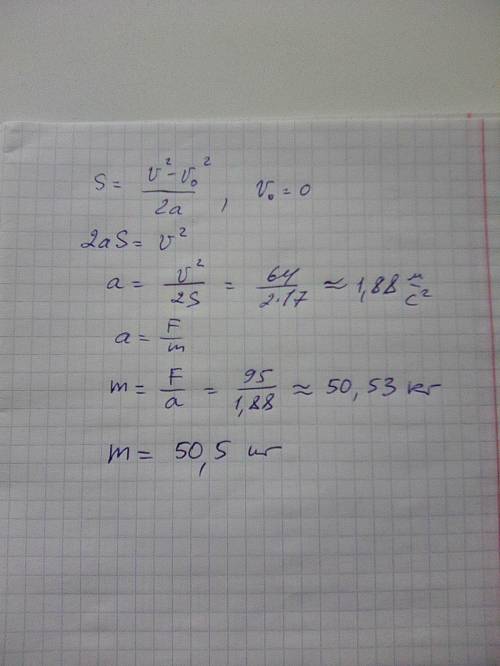 S = (v² - v₀²) / 2a , v₀ = 0
2aS = v²
a = v² / 2S = 64 / 2·17 ≈ 1,88 м/с²
a = F/m
m = F/a = 95 / 1,88 ≈ 50,53 кг
m = 50,5 кг